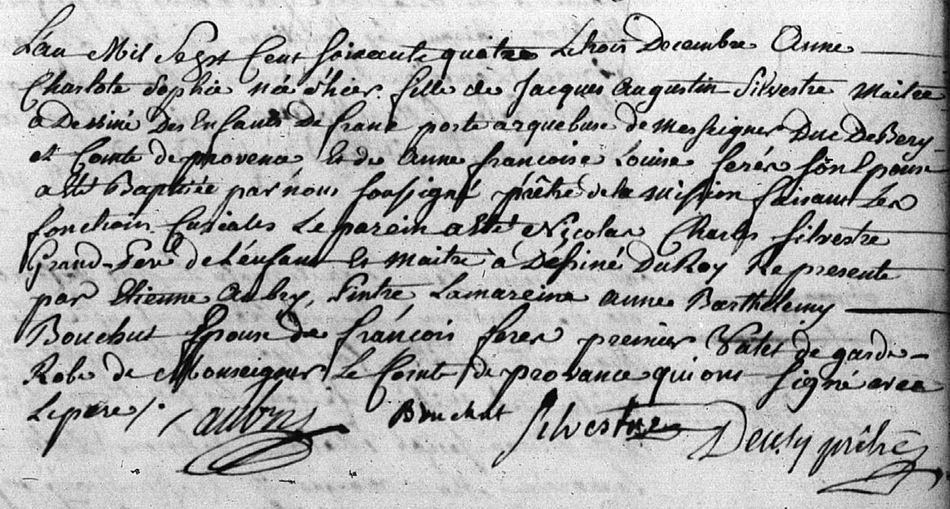 L'an Mil Sept Cent soixante quatre Le trois Decembre Anne
Charlote Sophie née d'hier fille de Jacques Augustin Silvestre Maitre
a Dessiné Des Enfants De france porte arquebuse de Messeigners Duc De Bery
et Comte de provence Et de Anne françoise Louise ferès son Epouse
a été Baptisée par nous soussigné prêtre de la Mission faisant Les
fonctions Curiales Le parein a été Nicolas Charles Silvestre
Grand-Pere de L'enfant Et Maitre a Dessiné Du Roy Represente
par Etienne Aubry, Pintre La mareine Anne Barthelemy
Bouchut Epouse de françois feres premier Valet de garde-
Robe de Monseigner Le Comte de provance qui ont signé avec
Le pere /. aubry Bouchut Silvestre prêtre